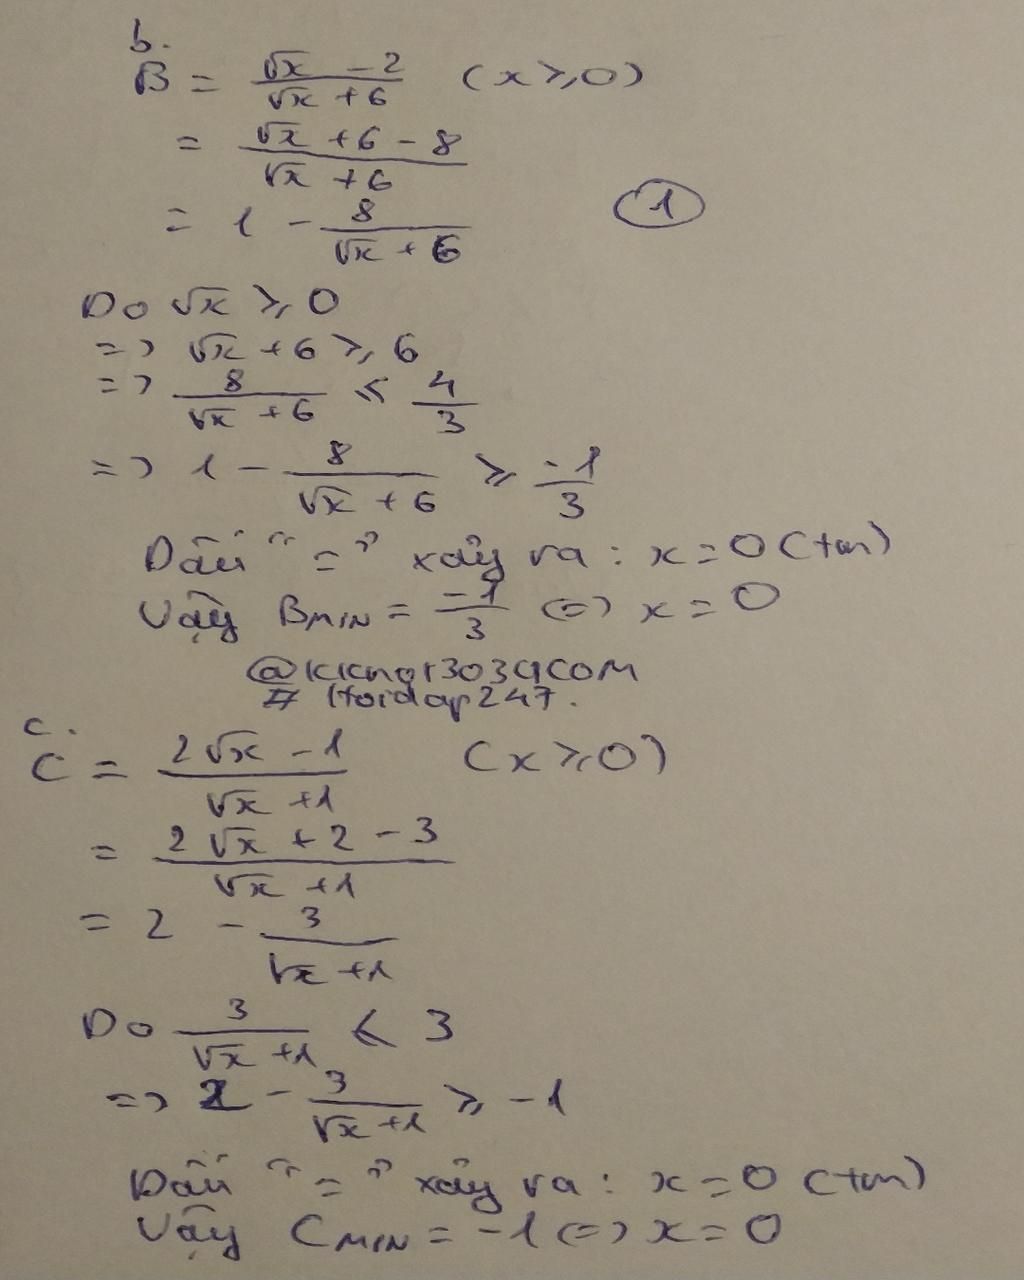 b.
B = (√x - 2)/(√x + 6) (x ≥ 0)
= (√x + 6 - 8)/(√x + 6)
= 1 - 8/(√x + 6)
1
Do √x ≥ 0
=> √x + 6 ≥ 6
=> 8/(√x + 6) ≤ 4/3
=> 1 - 8/(√x + 6) ≥ -1/3
Dấu "=" xảy ra: x = 0 (tm)
Vậy BMIN = -1/3 <=> x = 0
# Hoidap247.
c.
C = (2√x - 1)/(√x + 1) (x ≥ 0)
= (2√x + 2 - 3)/(√x + 1)
= 2 - 3/(√x + 1)
Do 3/(√x + 1) ≤ 3
=> 2 - 3/(√x + 1) ≥ -1
Dấu "=" xảy ra: x = 0 (tm)
Vậy CMIN = -1 <=> x = 0